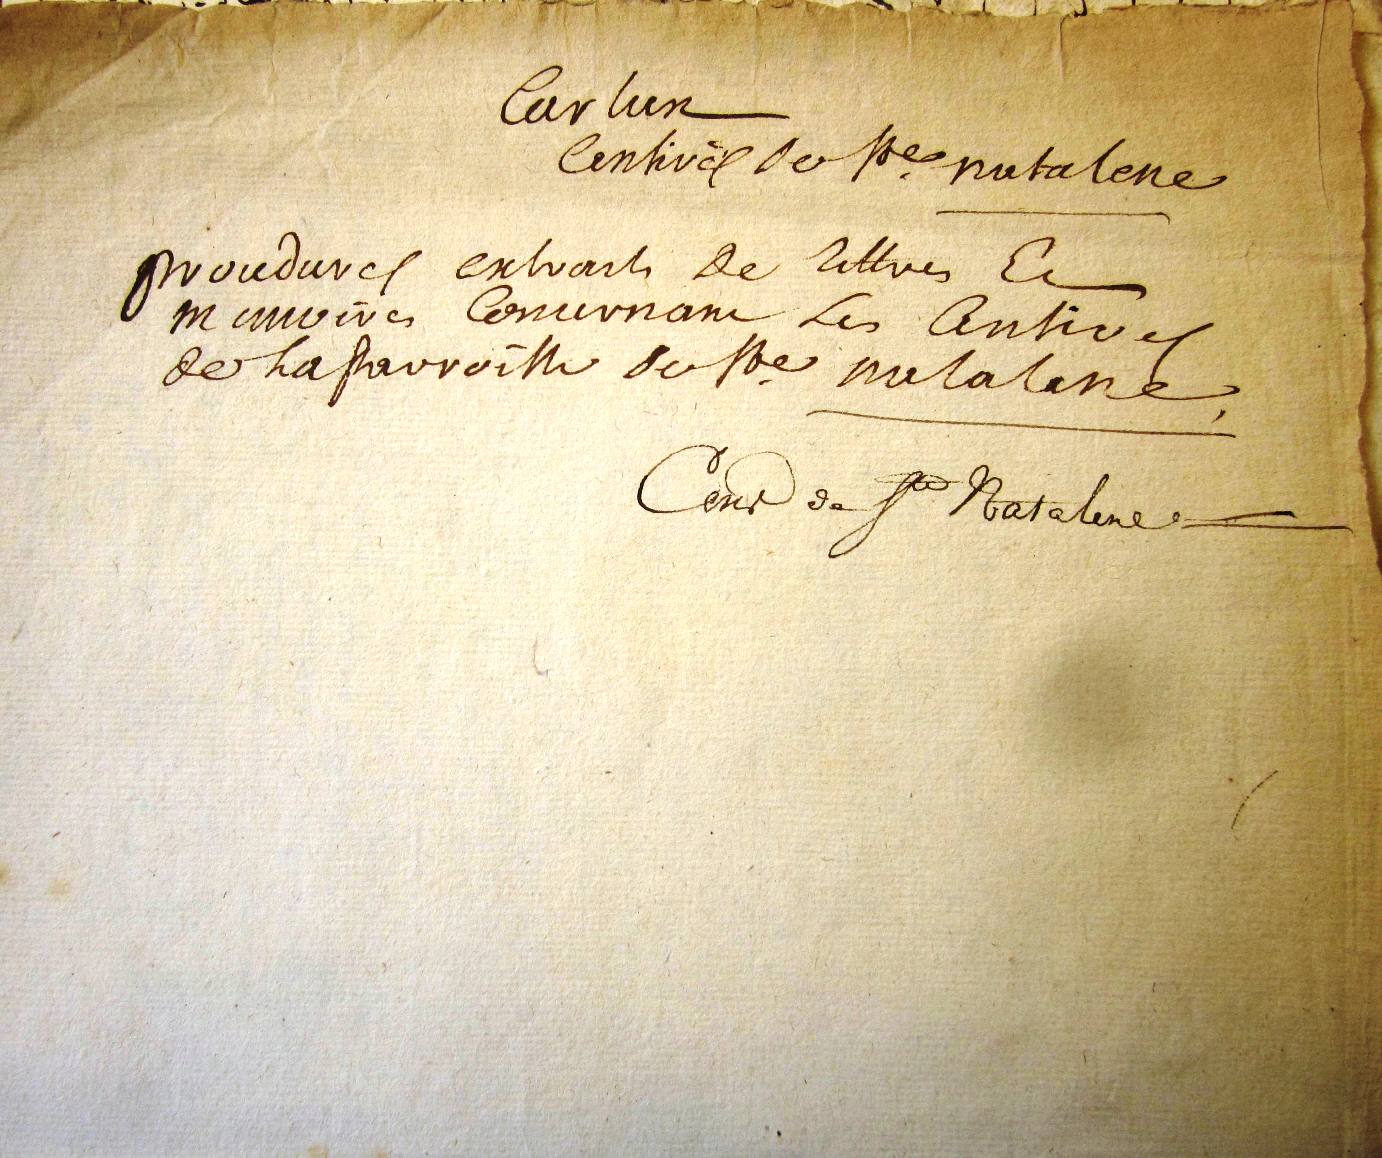 Carlux
Censives de Ste. natalene
procedures extraits de lettres Et
memoires Concernant Les Censives
de La parroisse de Ste. natalene,
Cens de Ste Natalene